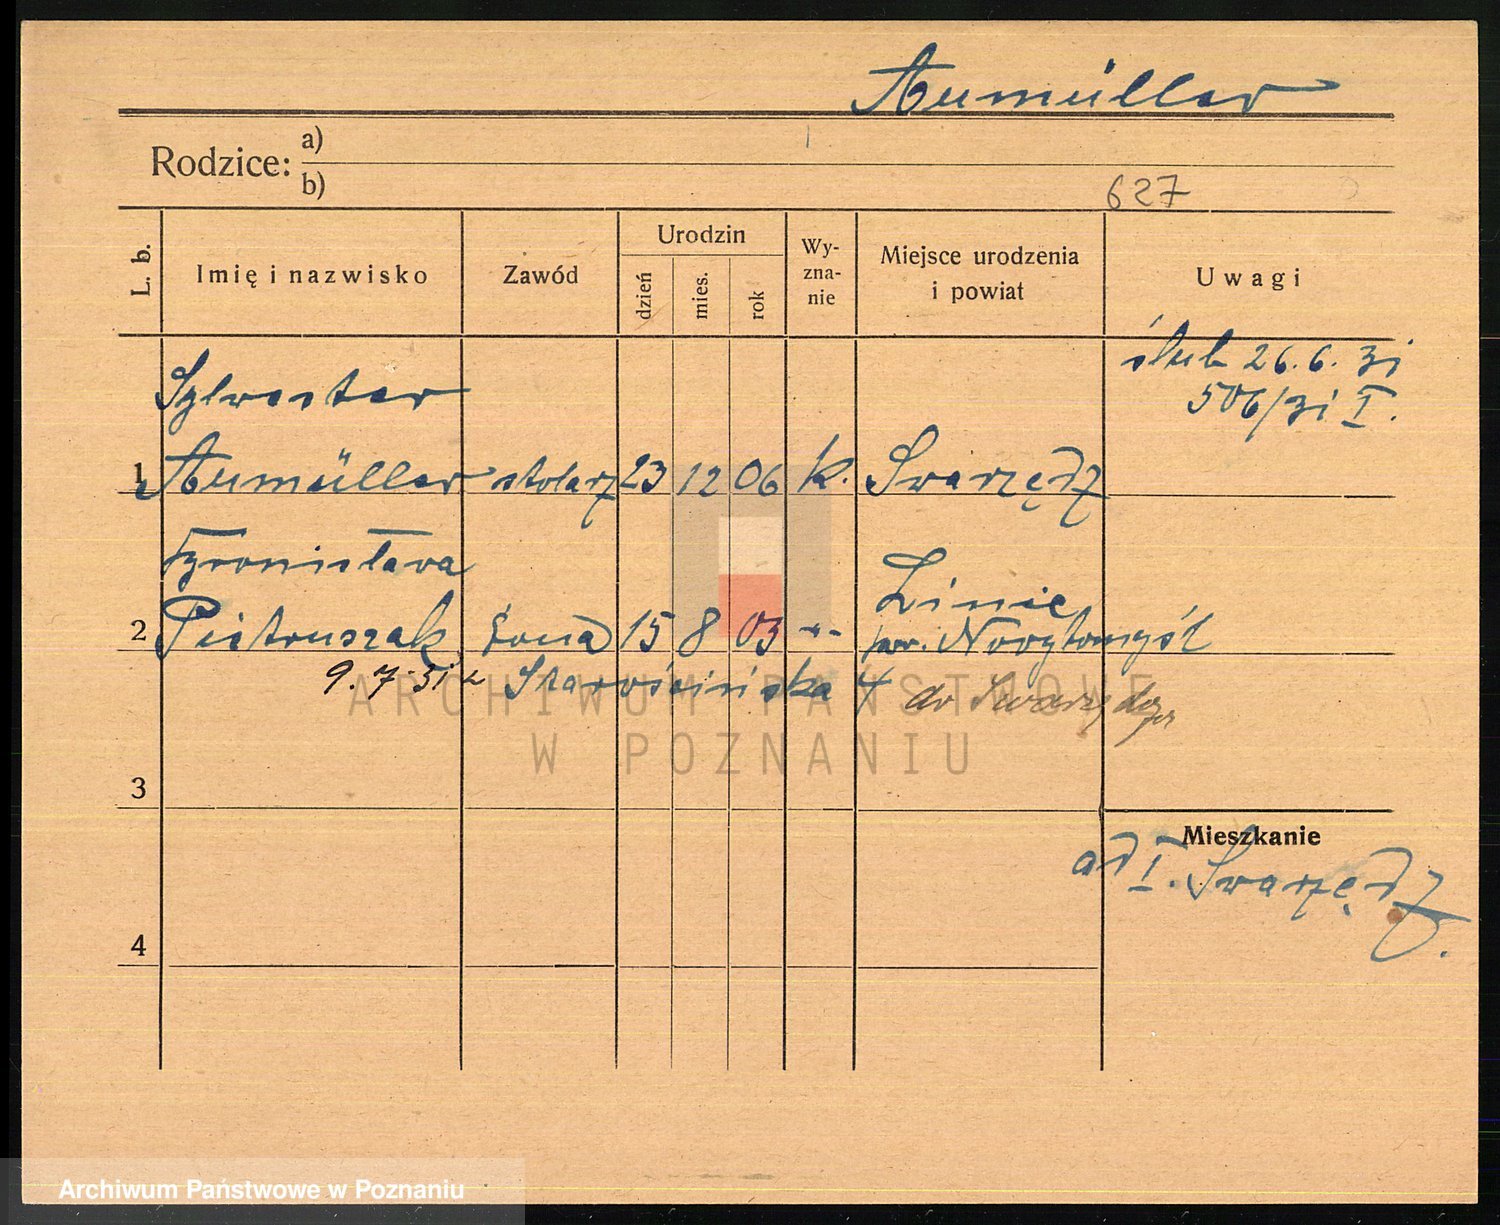 Aumüller
Rodzice:
a)
b)
627
L. b.
Imię i nazwisko
Zawód
Urodzin
dzień
mies.
rok
Wy-
zna-
nie
Miejsce urodzenia
i powiat
Uwagi
ślub 26.6.31
506/31 I.
Sylwester
1 Aumüller stolarz 23 12 06 k. Swarzędz
Bronisława
Linie
2 Pietruszak żona 15 8 03 -"- pow. Nowytomyśl
9.7.31 z Starościńska 4 do Swarzędza
ARCHIWUM PAŃSTWOWE
W POZNANIU
3
Mieszkanie
ad I. Swarzędz.
4
Archiwum Państwowe w Poznaniu